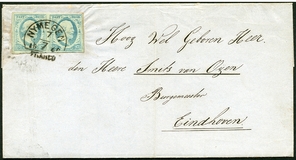 NYMEGEN
7
FRANCO
Hoog Wel Geboren Heer
den Heere Smits van Oyen
Burgemeester
Eindhoven